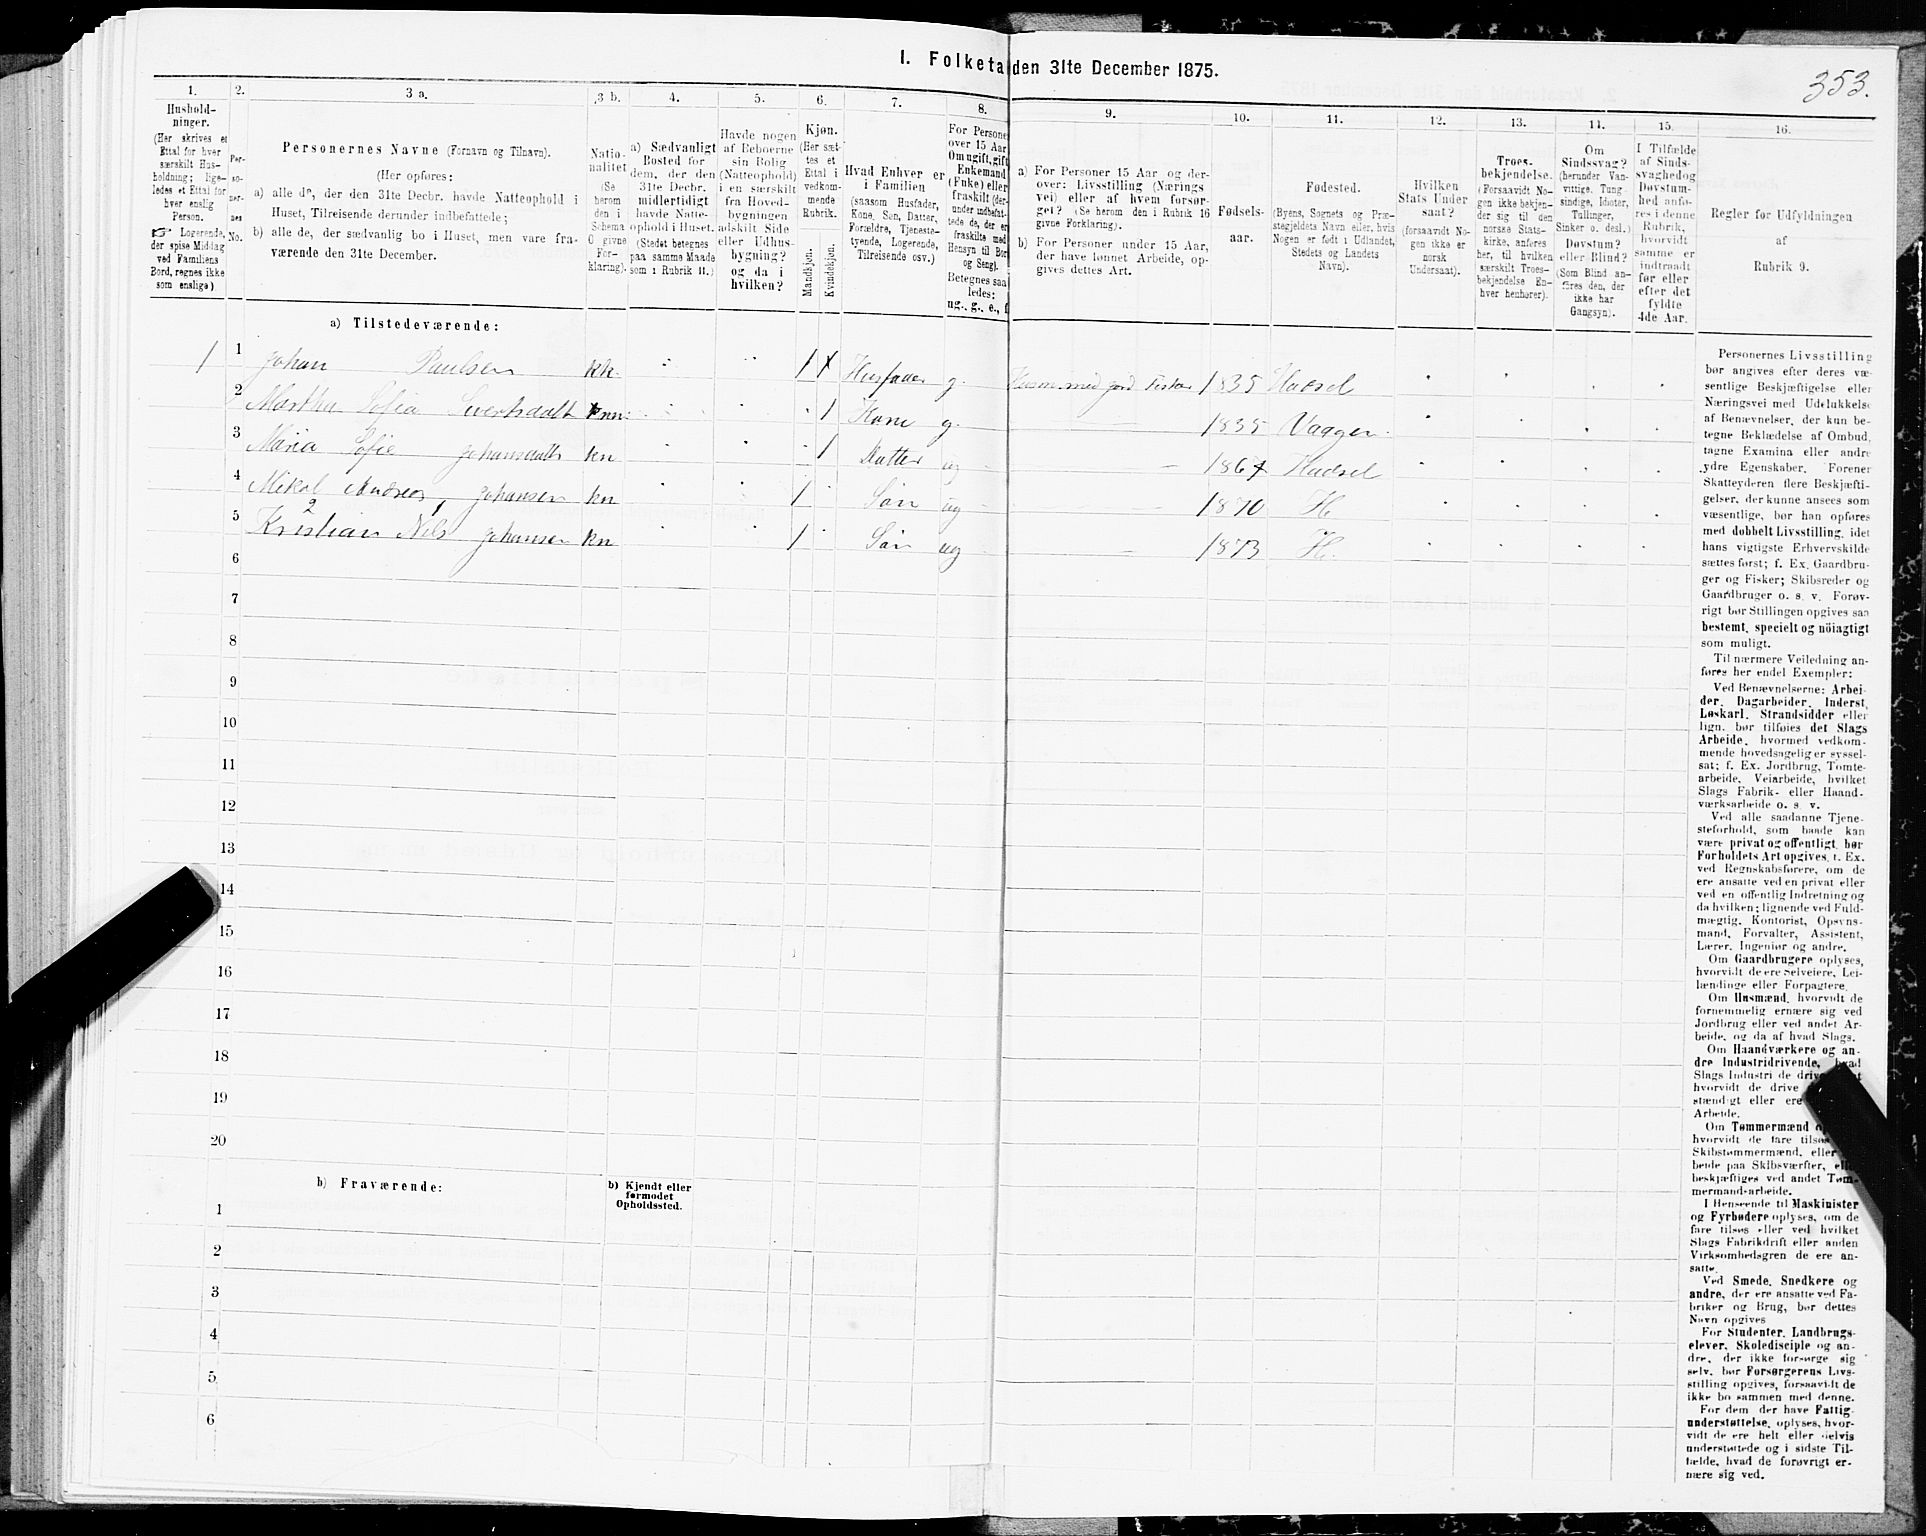 I. Folketa den 31te December 1875.
353.
1.
Hushold-
ninger.
(Her skrives et
Ettal for hver
særskilt Hus-
holdning; lige-
ledes et Ettal for
hver enslig
Person.
Logerende,
der spise Middag
ved Familiens
Bord, regnes ikke
som enslige)
2.
Per-
so-
ner-
nes
No.
3 a.
Personernes Navne (Fornavn og Tilnavn).
(Her opføres:
a) alle de, der den 31te Decbr. havde Natteophold i
Huset, Tilreisende derunder indbefattede;
b) alle de, der sædvanlig bo i Huset, men vare fra-
værende den 31te December.
3 b.
Natio-
nalitet
(Se
herom
den i
Schema
O givne
For-
klaring).
4.
a) Sædvanligt
Bosted for
dem, der den
31te Decbr.
midlertidigt
havde Natte-
ophold i Huset.
(Stedet betegnes
paa samme Maade
som i Rubrik 11.)
5.
Havde nogen
af Beboerne
sin Bolig
(Natteophold)
i en særskilt
fra Hoved-
bygningen
adskilt Side
eller Udhus-
bygning?
og da i
hvilken?
6.
Kjøn.
(Her sæt-
tes et
Ettal i
vedkom-
mende
Rubrik.
Mandkjøn.
Kvindekjøn.
7.
Hvad Enhver er
i Familien
(saasom Husfader,
Kone, Søn, Datter,
Forældre, Tjeneste-
tyende, Logerende,
Tilreisende osv.)
8.
For Persone
over 15 Aar
Om ugift, gift
Enkemand
(Enke) eller
fraskilt (der-
under indbefat-
tede de, der er
fraskilte med
Hensyn til Bor
og Seng).
Betegnes saa
ledes:
ug., g., e., f
9.
a) For Personer 15 Aar og der-
over: Livsstilling (Nærings
vei) eller af hvem forsør-
get? (Se herom den i Rubrik 16
givne Forklaring).
b) For Personer under 15 Aar,
der have lønnet Arbeide, op-
gives dettes Art.
10.
Fødsels-
aar.
11.
Fødested.
(Byens, Sognets og Præ-
stegjeldets Navn eller, hvis
Nogen er født i Udlandet,
Stedets og Landets
Navn).
12.
Hvilken
Stats Under
saat?
(forsaavidt No-
gen ikke er
norsk
Undersaat).
13.
Troes-
bekjendelse.
(Forsaavidt No-
gen ikke bekjen-
der sig til den
norske Stats-
kirke, anføres
her, til hvilken
særskilt Troes-
bekjendelse En-
hver henhører).
14.
Om
Sindssvag?
(herunder Van-
vittige, Tung-
sindige, Idioter,
Tullinger,
Sinker o. desl.)
Døvstum?
eller Blind?
(Som Blind an-
føres den, der
ikke har
Gangsyn).
15.
I Tilfælde
af Sinds-
svaghed og
Døvstum-
hed anfø-
res i denne
Rubrik,
hvorvidt
samme er
indtraadt
før eller
efter det
fyldte
4de Aar.
16.
Regler for Udfyldningen
af
Rubrik 9.
a) Tilstedeværende:
1 1 Johan Paulsen kk. 1 Husfader g. Husm. med jord Fisker 1835 Hadsel
2 Martha Sofia Sivertsdatt kn 1 Kone g. 1835 Vaagen
3 Maria Sofie Johansdatt kn 1 Datter ug 1867 Hadsel
4 Mikal Andreas Johansen kn 1 Søn ug 1870 H.
5 Kristian Nils Johansen kn 1 Søn ug 1873 H.
6
7
8
9
10
11
12
13
14
15
16
17
18
19
20
b) Fraværende:
b) Kjendt eller
formodet
Opholdssted.
1
2
3
4
5
6
Personernes Livsstilling
bør angives efter deres væ-
sentlige Beskjæftigelse eller
Næringsvei med Udelukkelse
af Benævnelser, der kun be-
tegne Beklædelse af Ombud,
tagne Examina eller andre
ydre Egenskaber. Forener
Skatteyderen flere Beskjæfti-
gelser, der kunne ansees som
væsentlige, bør han opføres
med dobbelt Livsstilling, idet
hans vigtigste Erhvervskilde
sættes først; f. Ex. Gaardbru-
ger og Fisker; Skibsreder og
Gaardbruger o. s. v. Forøv-
rigt bør Stillingen opgives saa
bestemt, specielt og nöiagtigt
som muligt.
Til nærmere Veiledning an-
føres her endel Exempler:
Ved Benævnelserne: Arbei-
der, Dagarbeider, Inderst,
Løskarl, Strandsidder eller
lign. bør tilføies det Slags
Arbeide, hvormed vedkom-
mende hovedsagelig er syssel-
sat; f. Ex. Jordbrug, Tomte-
arbeide, Veiarbeide, hvilket
Slags Fabrik- eller Haand-
værksarbeide o. s. v.
Ved alle saadanne Tjene-
steforhold, som baade kan
være privat og offentligt, bør
Forholdets Art opgives, f. Ex.
ved Regnskabsførere, om de
ere ansatte ved en privat eller
ved en offentlig Indretning og
da hvilken; lignende ved Fuld-
mægtig, Kontorist, Opsyns-
mand, Forvalter, Assistent,
Lærer, Ingeniør og andre.
Om Gaardbrugere oplyses,
hvorvidt de ere Selveiere, Lei-
lændinge eller Forpagtere.
Om Husmænd, hvorvidt de
fornemmelig ernære sig ved
Jordbrug eller ved andet Ar-
beide, og da af hvad Slags.
Om Haandværkere og an-
dre Industridrivende, hvad
Slags Industri de drive
hvorvidt de drive
stændigt eller ere
Arbeide.
Om Tømmermænd
hvorvidt de fare tilsøs
Skibstømmermænd, eller
beide paa Skibsværfter,
beskjæftiges ved andet Tøm-
mermand-arbeide.
I Henseende til Maskinister
og Fyrbødere oplyses, om de
fare tilsøs eller ved hvilket
Slags Fabrikdrift eller anden
Virksomhedsgren de ere an-
satte.
Ved Smede, Snedkere og
andre, der ere ansatte ved Fa-
briker og Brug, bør dettes
Navn opgives
For Studenter, Landbrugs-
elever, Skoledisciple og an-
dre, der ikke forsørge sig
selv, bør Forsørgerens Livs-
stilling opgives, forsaavidt de
ikke bo sammen med denne.
For dem der have Fattig-
understøttelse, oplyses, hvor-
vidt de ere helt eller delvis
understøttede og i sidste Til-
fælde, hvad de forøvrigt er-
nære sig ved.